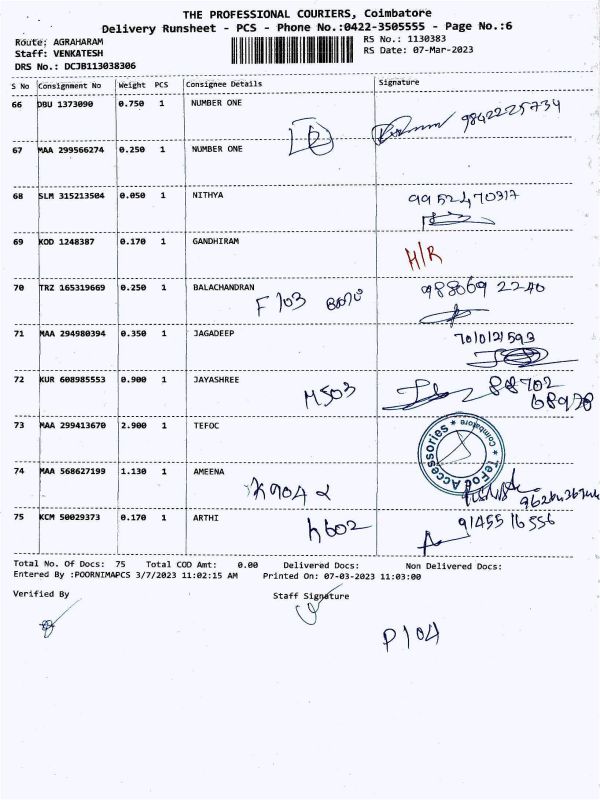 THE PROFESSIONAL COURIERS, Coimbatore
Delivery Runsheet - PCS - Phone No.:0422-3505555 - Page No.:6
Route: AGRAHARAM RS No.: 1130383
Staff: VENKATESH RS Date: 07-Mar-2023
DRS No.: DCJB113038306
S No Consignment No Weight PCS Consignee Details Signature
66 DBU 1373090 0.750 1 NUMBER ONE 9842225734
67 MAA 299566274 0.250 1 NUMBER ONE
68 SLM 315213504 0.050 1 NITHYA 9952470317
69 KOD 1248387 0.170 1 GANDHIRAM H/R
70 TRZ 165319669 0.250 1 BALACHANDRAN 988069 2240
F103
71 MAA 294980394 0.350 1 JAGADEEP
72 KUR 608985553 0.900 1 JAYASHREE 88702
M503 68978
73 MAA 299413670 2.900 1 TEFOC
TeFoc Accessories * Coimbatore *
74 MAA 568627199 1.130 1 AMEENA
K904
75 KCM 50029373 0.170 1 ARTHI 9145516556
K602
Total No. Of Docs: 75 Total COD Amt: 0.00 Delivered Docs: Non Delivered Docs:
Entered By :POORNIMAPCS 3/7/2023 11:02:15 AM Printed On: 07-03-2023 11:03:00
Verified By Staff Signature
P104